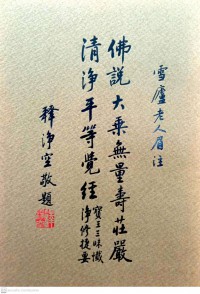 雪廬老人眉注
佛說大乘無量壽莊嚴
清淨平等覺經
寶王三昧懺
淨修捷要
釋淨空敬題